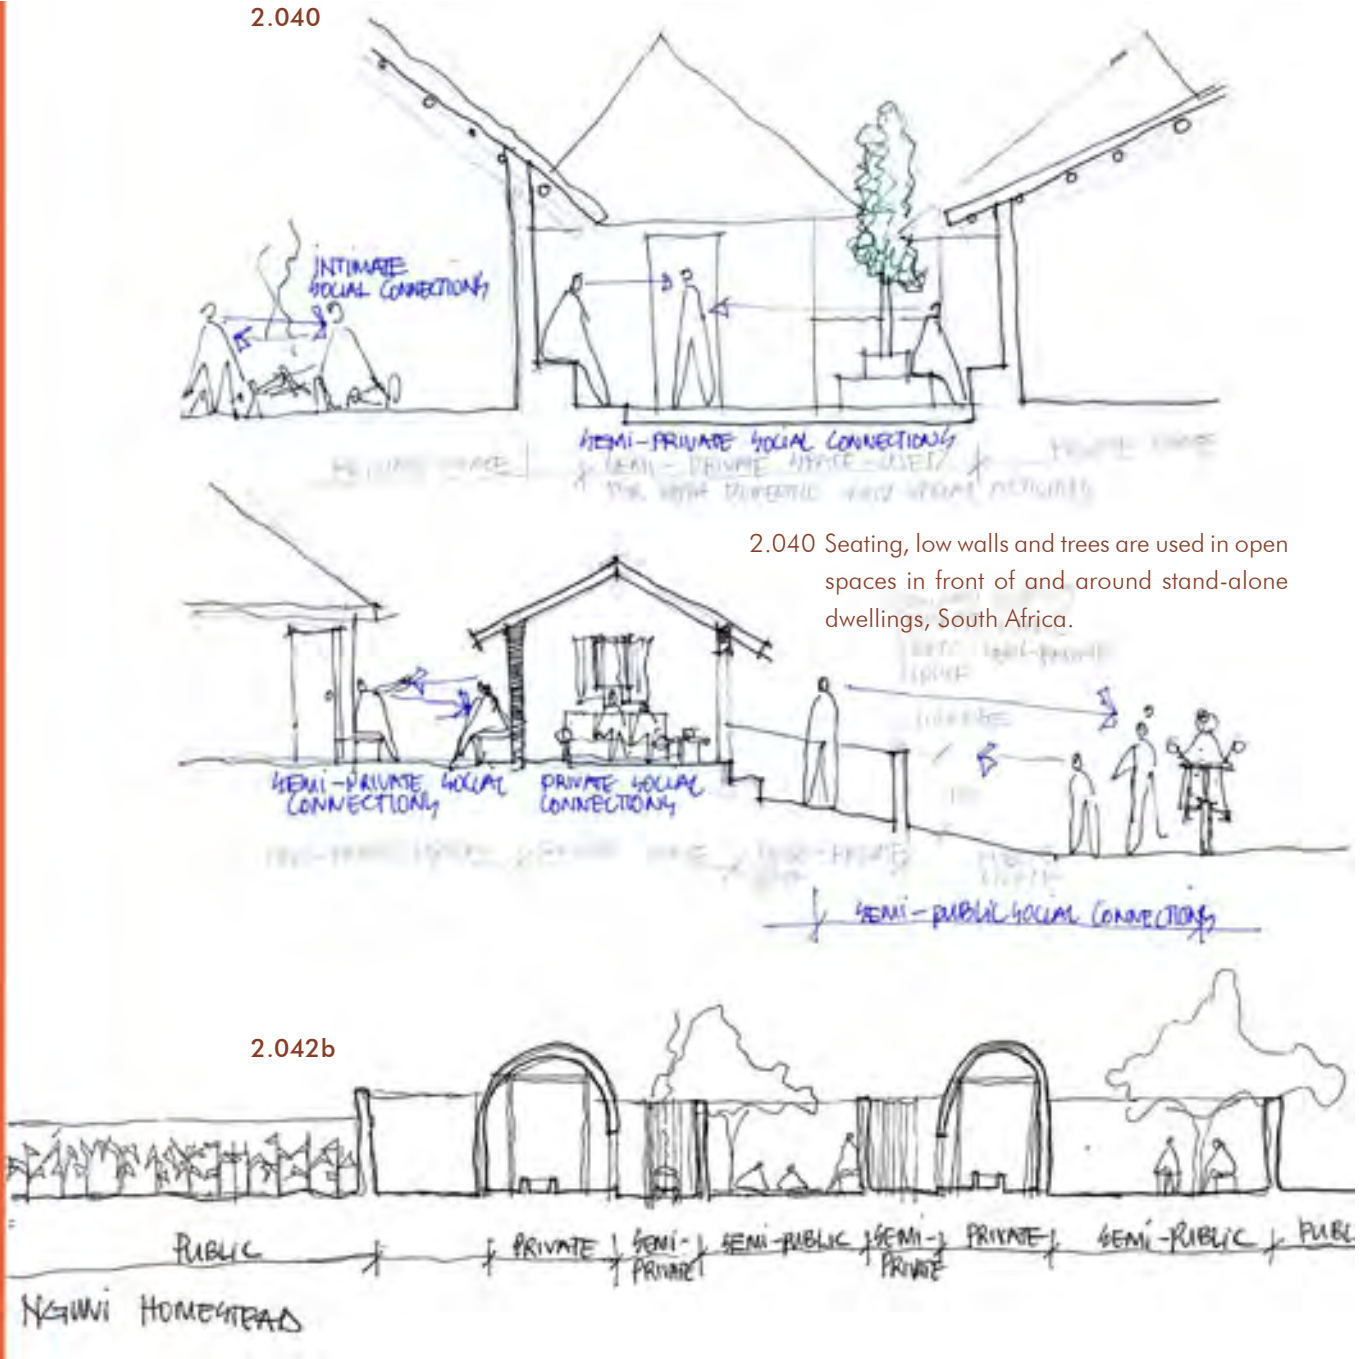 2.040
INTIMATE
SOCIAL CONNECTIONS
SEMI-PRIVATE SOCIAL CONNECTIONS
PRIVATE SPACE
SEMI-PRIVATE SPACE-USED
PRIVATE SPACE
FOR BOTH DOMESTIC AND SOCIAL ACTIVITIES
2.040 Seating, low walls and trees are used in open
spaces in front of and around stand-alone
dwellings, South Africa.
SEMI-PRIVATE SOCIAL
CONNECTIONS
PRIVATE SOCIAL
CONNECTIONS
SEMI-PUBLIC SOCIAL CONNECTIONS
2.042b
PUBLIC
PRIVATE
SEMI-
PRIVATE
SEMI-PUBLIC
SEMI-
PRIVATE
PRIVATE
SEMI-PUBLIC
PUBL
NGUNI HOMESTEAD